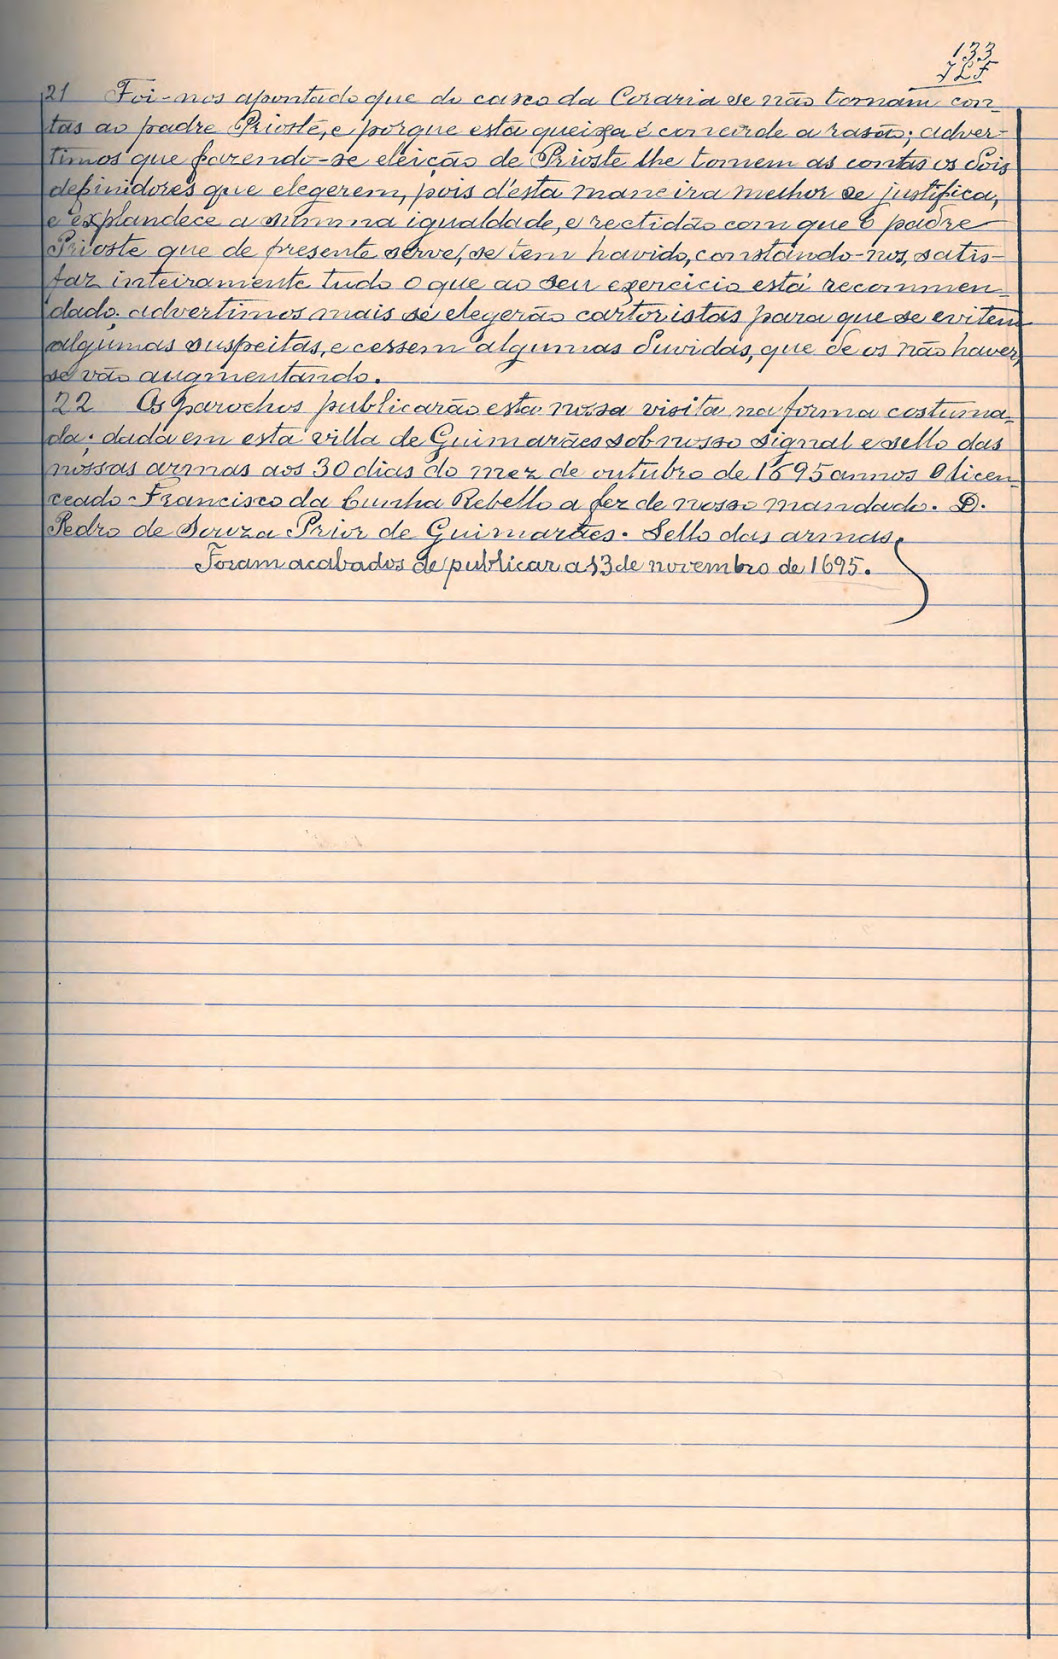 133
JLF
21 Foi-nos apontado que do casco da Coraria se não tomam con-
tas ao padre Prioste, e porque esta queixa é concorde a rasão; adver-
timos que fazendo-se eleição de Prioste lhe tomem as contas os dois
definidores que elegerem, pois d'esta maneira melhor se justifica,
e explandece a summa igualdade, e rectidão com que o padre
Prioste que de presente serve, se tem havido, constando-nos, satis-
faz inteiramente tudo o que ao seu exercicio está recommen-
dado: advertimos mais se elegerão cartoristas para que se evitem
algumas suspeitas, e cessem algumas duvidas, que de os não haver,
se vão augmentando.
22 Os parochos publicarão esta nossa visita na forma costuma-
da: dada em esta villa de Guimarães sob nosso signal e sello das
nossas armas aos 30 dias do mez de outubro de 1695 annos O licen-
ceado - Francisco da Cunha Rebello a fez de nosso mandado. D.
Pedro de Souza Prior de Guimarães. Sello das armas.
Foram acabados de publicar a 13 de novembro de 1695.